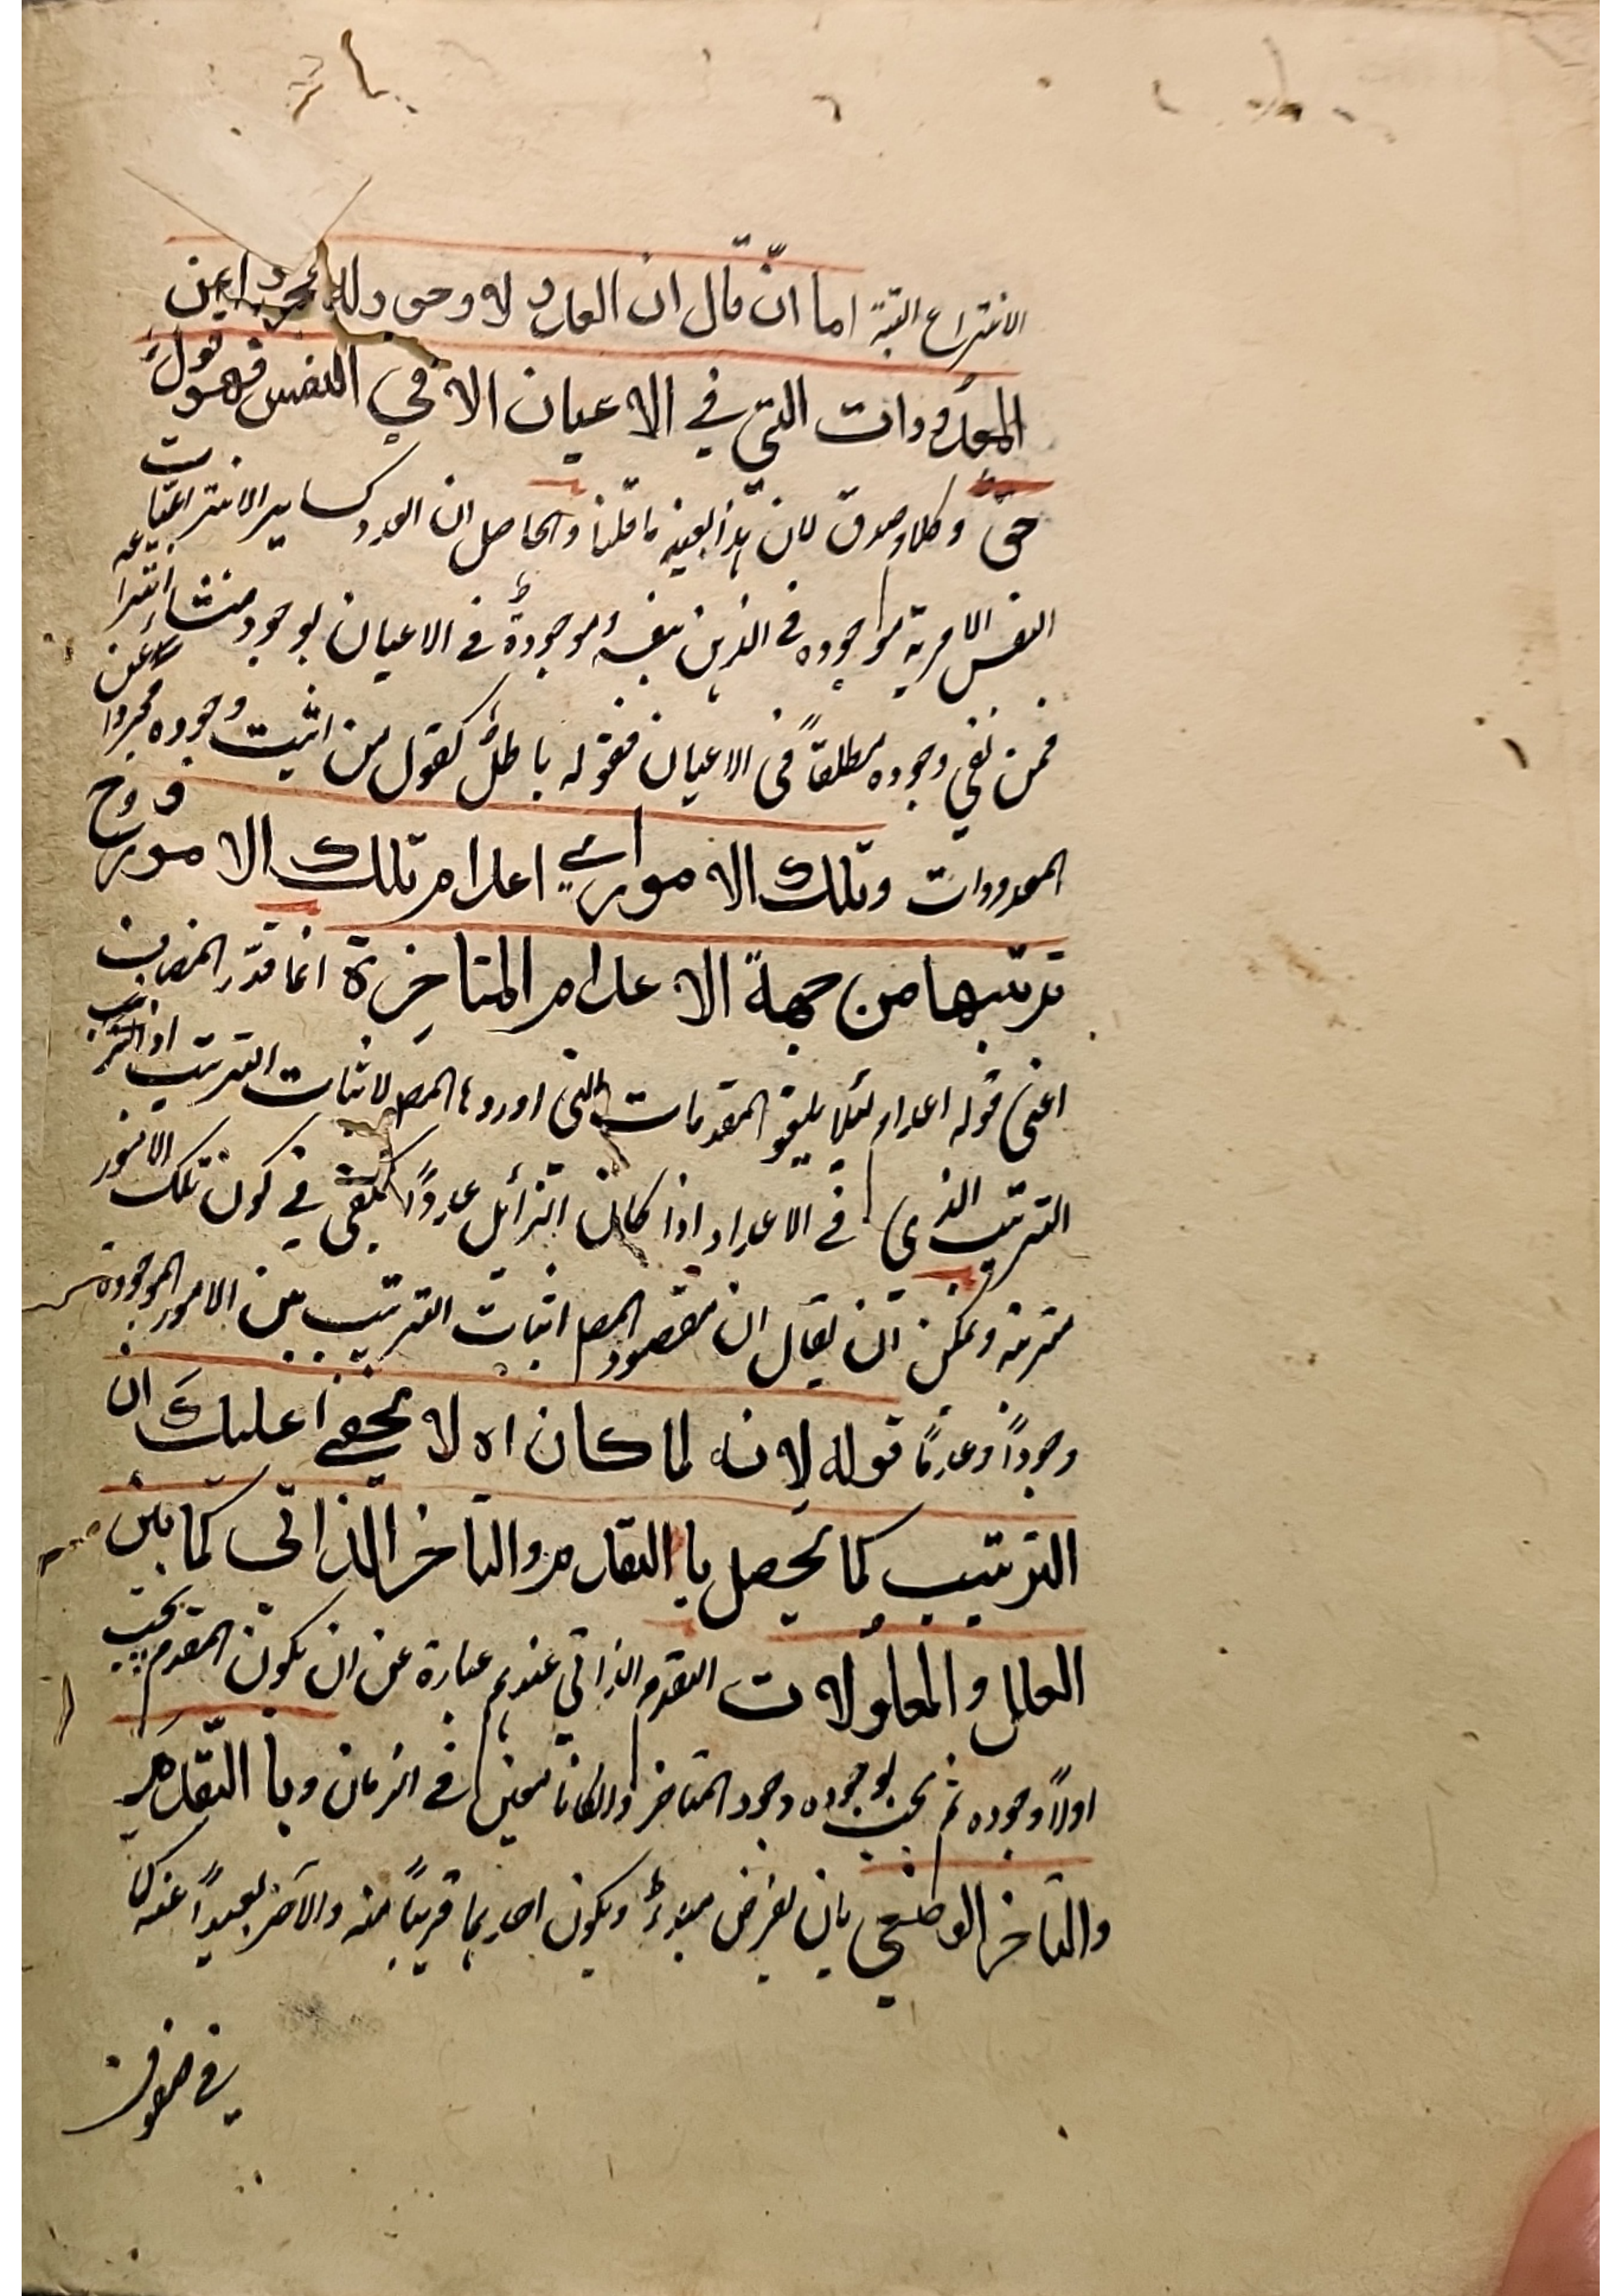 الانتزاع البتة اما انّ قال ان العدد لا وجود له مجردا عن
المعدودات التي في الاعيان الا في النفس فهو قول
حق وكلام صدق لان هذا بعينه ما قلنا والحاصل ان العدد كساير الانتزاعيات
النفس الامرية موجوده في الذهن بنفسه موجودة في الاعيان لوجود منشاء انتزاعه
فمن نفي وجوده مطلقاً في الاعيان فقوله باطل كقول من اثبت وجوده مجردا عن
المعدودات وتلك الامور اي اعدام تلك الامور
ترتبها من جهة الاعدام المتاخرة انما قدّر المضاف
اعني قوله اعدام لئلا يلغو المقدمات التي اوردها المصـ لاثبات الترتيب اذ الترتيب
الترتيب الذي في الاعداد اذا كان الزائل عدداً يكفي في كون تلك الامور
مترتبة ويمكن ان يقال ان مقصود المصـ اثبات الترتيب بين الامور الموجودة
وجوداً وعدمًا قوله لانه لما كان اه لا يخفى عليك ان
الترتيب كما يحصل با التقدم والتاخر الذاتي كما بين
العلل والمعلولات التقدم الذاتي عندهم عبارة عن ان يكون المقدم يجب
اولاً وجوده ثم يجب بوجوده وجود المتاخر وان كانا معين في الزمان وبا التقدم
والتاخر الوضعي بان يفرض مبدءٌ ويكون احدهما قريباً منه والآخر بعيداً عنه كما
في صفوف